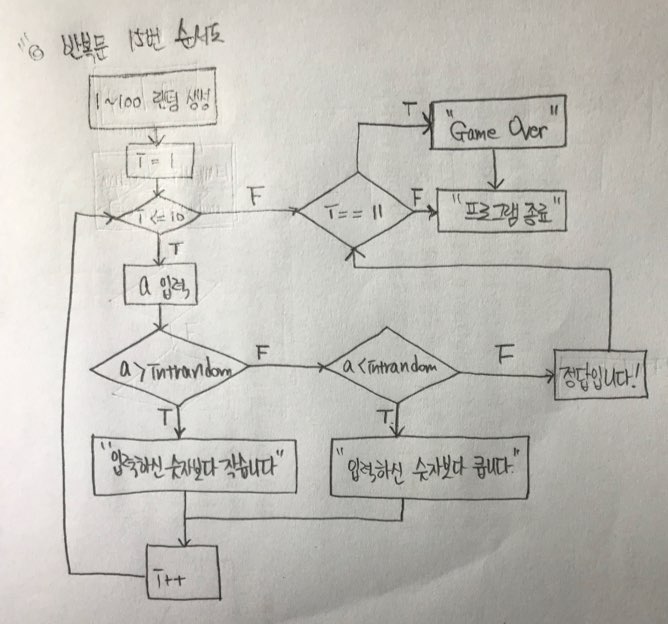 ◎ 반복문 15번 순서도
1~100 랜덤 생성
i = 1
i <= 10
F
T
i == 11
T
"Game Over"
F
"프로그램 종료"
a 입력
a > intrandom
F
a < intrandom
F
정답입니다!
T
T
"입력하신 숫자보다 작습니다"
"입력하신 숫자보다 큽니다"
i++